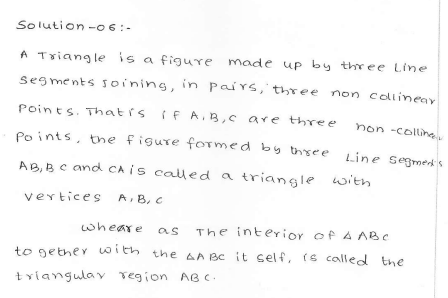 Solution-06:-
A Triangle is a figure made up by three Line
segments joining, in pairs, three non collinear
Points. That is if A,B,C are three non-collinea
Points, the figure formed by three Line segments
AB, BC and CA is called a triangle with
vertices A,B,C
wheare as The interior of △ ABC
to gether with the △ABC it self, is called the
triangular region ABC.